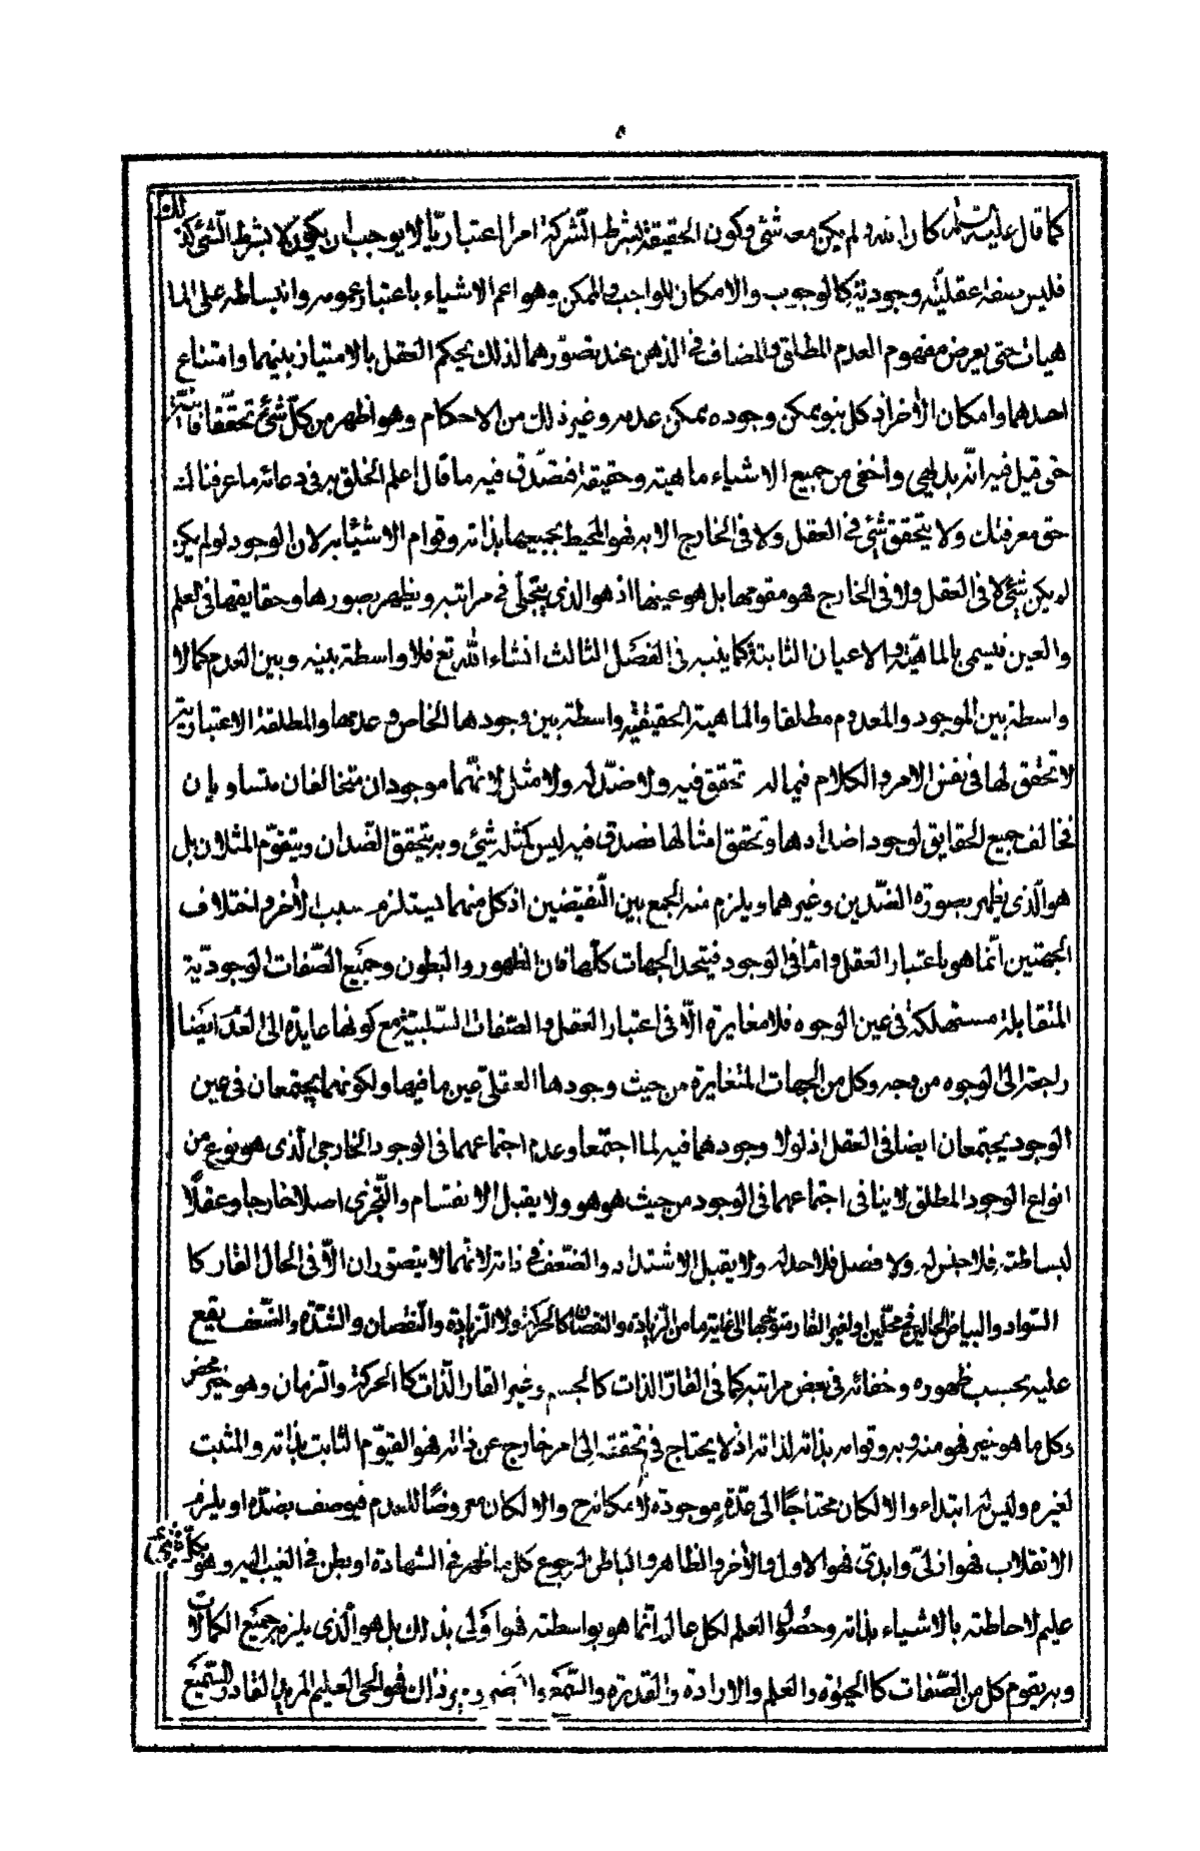 ٥
كما قال عليه السلام كان الله ولم يكن معه شئ وكون الحقيقة بشرط الشركة امرا اعتباريا لا يوجب ان يكون لا بشرط الشئ كذلك
فليس صفة عقلية وجودية كالوجوب والامكان للواجب والممكن وهو اعم الاشياء باعتبار عمومه وانبساطه على الما
هيات حتى يعرض مفهوم العدم المطلق والمضاف فى الذهن عند تصورهما لذلك يحكم العقل بالامتياز بينهما وامتناع
احدهما وامكان الأخر اذ كل ما هو ممكن وجوده يمكن عدمه وغير ذلك من الاحكام وهو اظهر من كل شئ تحققا وانية
حتى قيل فيه انه بديهى واخفى من جميع الاشياء ماهية وحقيقة فصدق فيه ما قال اعلم الخلق به فى دعائه ما عرفناك
حق معرفتك ولا يتحقق شئ فى العقل ولا فى الخارج الا به فهو المحيط بجميعها بذاته وقوام الاشياء به لان الوجود لو لم يكن
لم يكن شئ لا فى العقل ولا فى الخارج فهو مقومها بل هو عينها اذ هو الذى يتجلى فى مراتبه ويظهر بصورها وحقايقها فى العلم
والعين فيسمى بالماهية والاعيان الثابتة كما ينبه فى الفصل الثالث انشاء الله تع فلا واسطة بينه وبين العدم كما لا
واسطة بين الموجود والمعدوم مطلقا والماهية الحقيقية واسطة بين وجودها الخاص و عدمها والمطلقة الاعتبارية
لا تحقق لها فى نفس الامر والكلام فيما له تحقق فيه ولا ضد له ولا مثل لانهما موجودان متخالفان متساويان
فخالف جميع الحقايق لوجود اضدادها وتحقق امثالها فصدق فيه ليس كمثله شئ وبه يتحقق الضدان ويتقوم المثلان بل
هو الذى يظهر بصورة الضدين وغيرهما ويلزم منه الجمع بين النقيضين اذ كل منهما يستلزم سلب الأخر واختلاف
الجهتين انما هو باعتبار العقل واما فى الوجود فيتحد الجهات كلها فان الظهور والبطون وجميع الصفات الوجودية
المتقابلة مستهلكة فى عين الوجود فلا مغايرة الا فى اعتبار العقل والصفات السلبية مع كونها عايدة الى العدم ايضا
راجعة الى الوجود من وجه وكل من الجهات المتغايرة من حيث وجودها العقلى عين ما فيها ولكونهما يجتمعان فى عين
الوجود يجتمعان ايضا فى العقل اذ لولا وجودهما فيه لما اجتمعا وعدم اجتماعهما فى الوجود الخارجى الذى هو نوع من
انواع الوجود المطلق لا ينافى اجتماعهما فى الوجود من حيث هو هو ولا يقبل الانقسام والتجزى اصلا خارجا وعقلا
لبساطته فلا جنس له ولا فصل فلا حد له ولا يقبل الاشتداد والضعف فى ذاته لانهما لا يتصوران الا فى الحال القار كا
السواد والبياض الحالين فى محلين او لغير القار متوجها الى غاية ما من الزيادة والنقصان كالحركة ولا الزيادة والنقصان والشدة والضعف يقع
عليه بحسب ظهوره وخفائه فى بعض مراتبه كما فى القار الذات كالجسم وغير القار الذات كا الحركة والزمان وهو خير محض
وكل ما هو خير فهو منه وبه وقوامه بذاته لذاته اذ لا يحتاج فى تحققه الى امر خارج عن ذاته فهو القيوم الثابت بذاته والمثبت
لغيره وليس له ابتداء والا لكان محتاجا الى علة موجودة لامكانه ح والا لكان معروضا للعدم فيوصف بضده او يلزم
الانقلاب فهو ازلى وابدى فهو الاول والأخر والظاهر والباطن لرجوع كل ما ظهر فى الشهادة او بطن فى الغيب اليه وهو بكل شئ
عليم لاحاطته بالاشياء بذاته وحصول العلم لكل عالم انما هو بواسطته فهو اولى بذلك بل هو الذى يلزمه جميع الكمالات
وبه يقوم كل من الصفات كا الحيوة والعلم والارادة والقدرة والسمع والبصر وغير ذلك فهو الحى العليم المريد القادر السميع